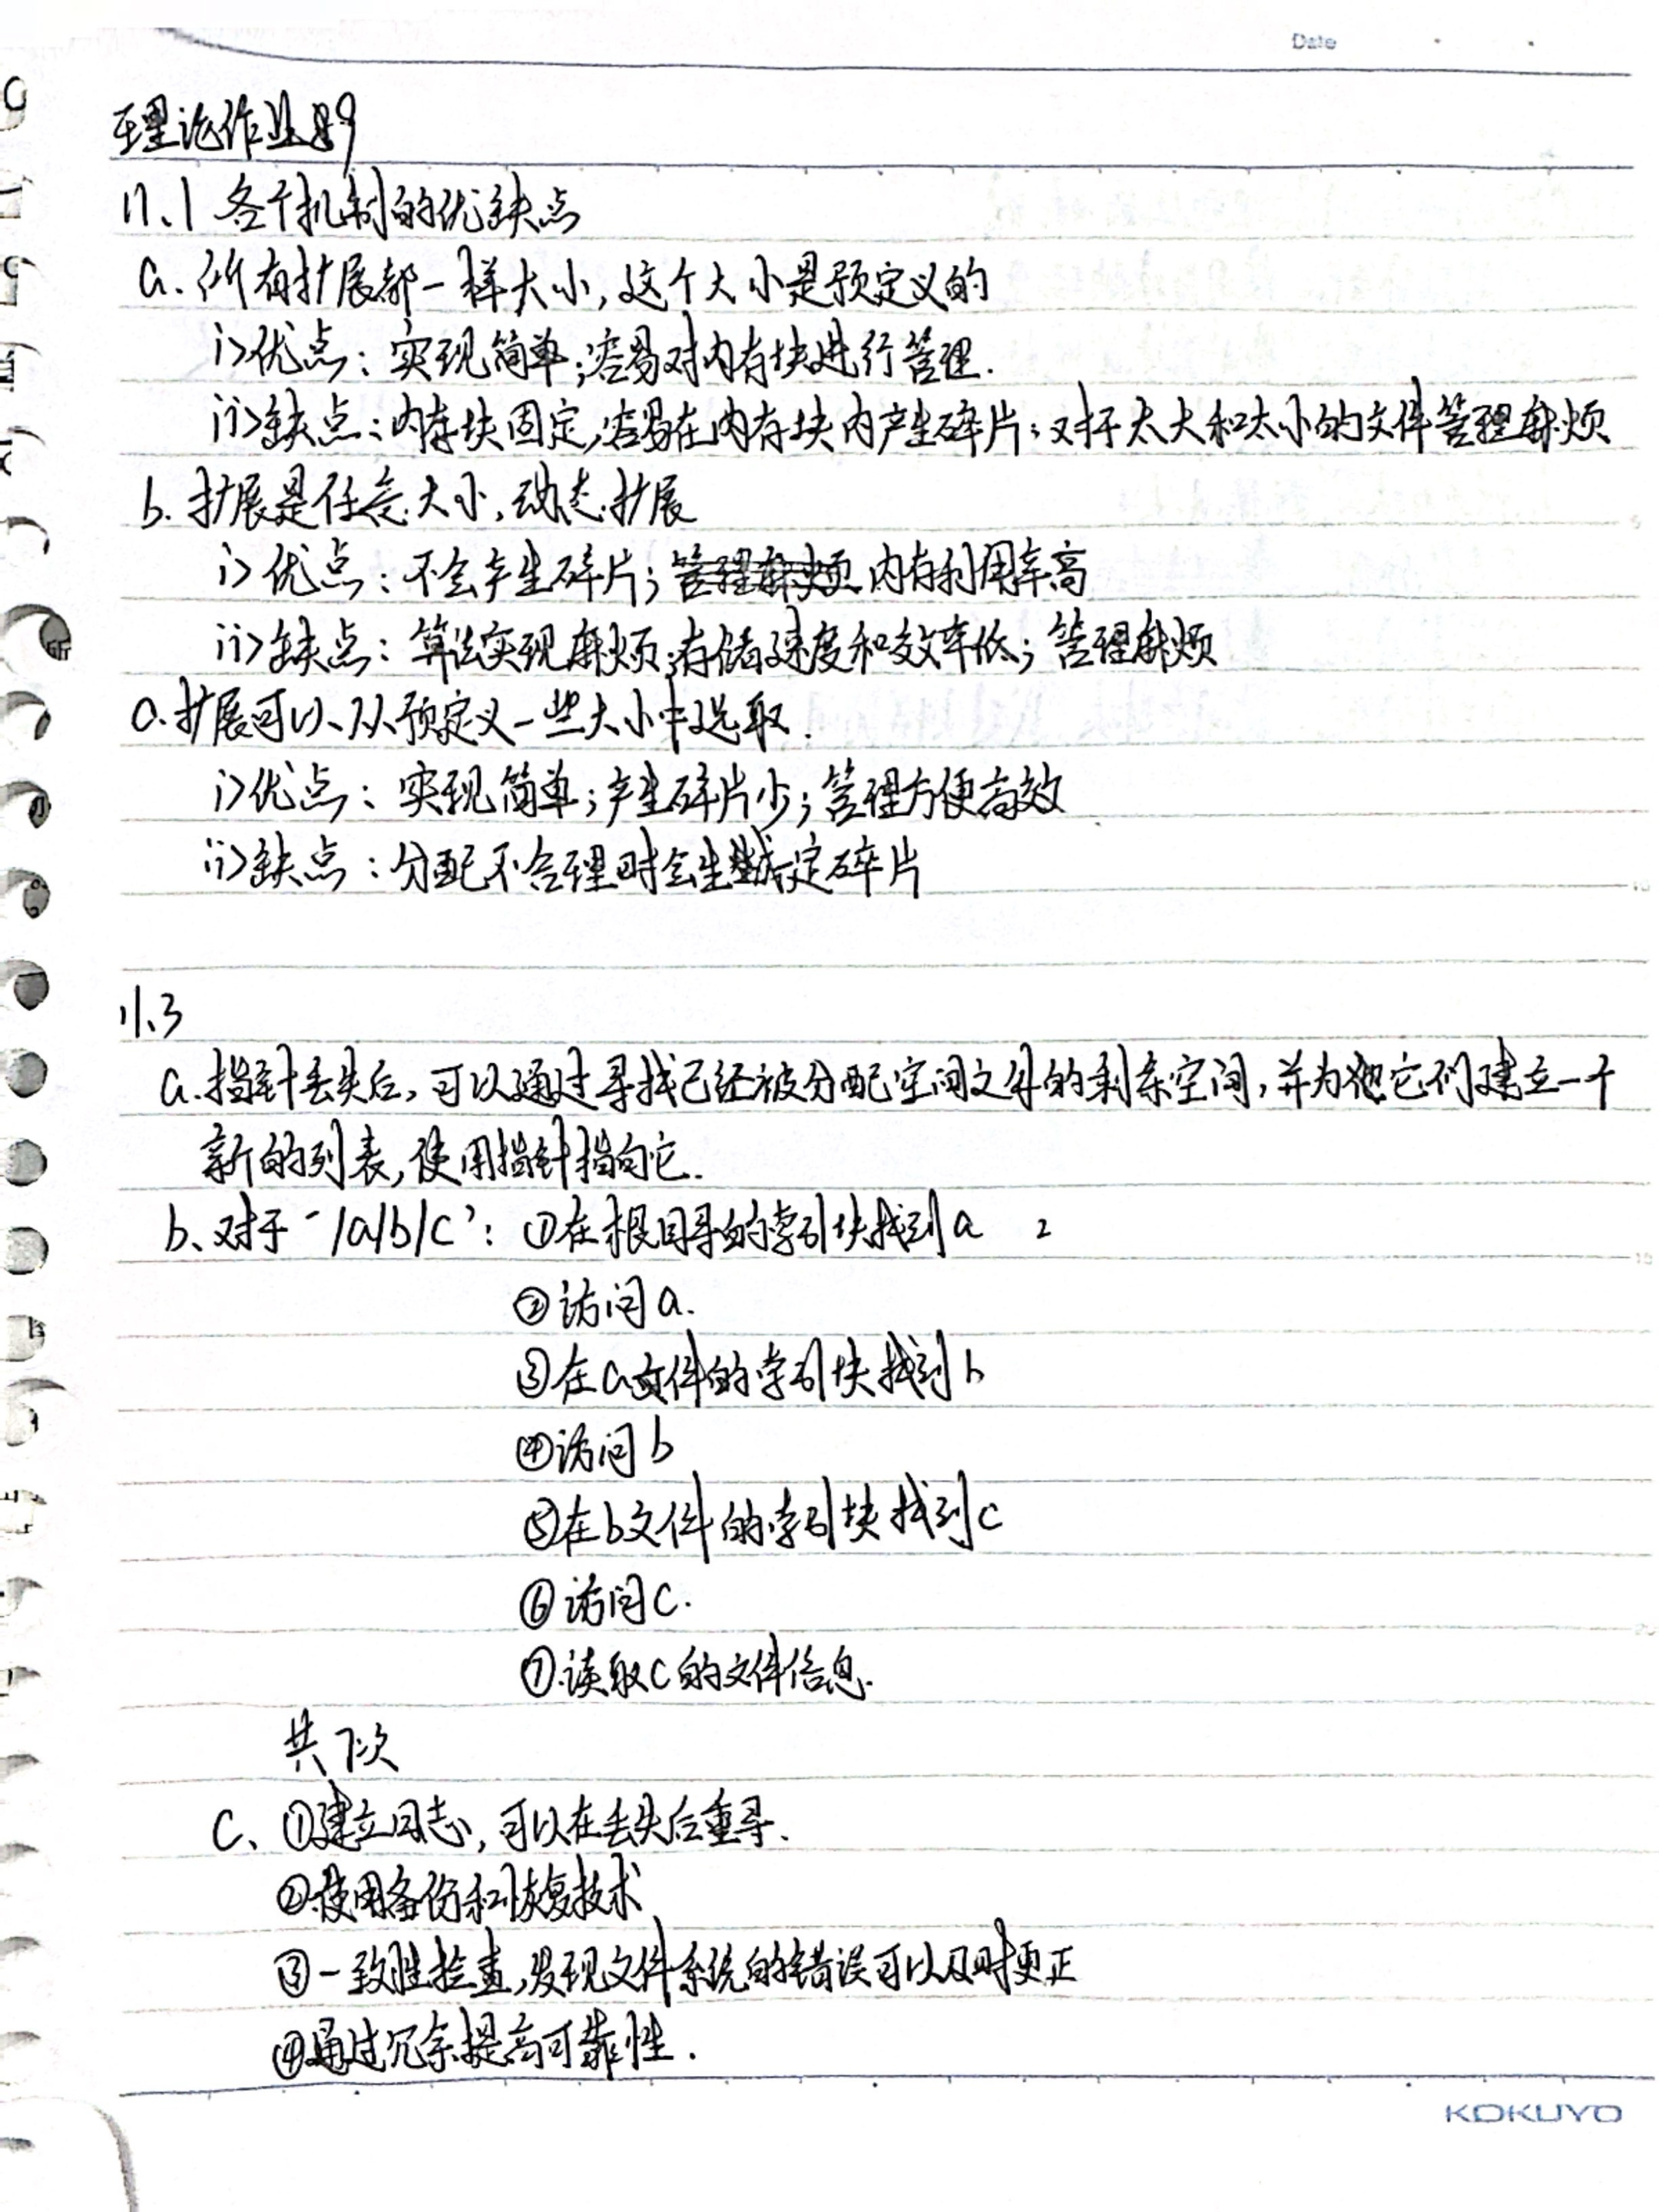 Date
理论作业9
11.1 各个机制的优缺点
a. 所有扩展都一样大小,这个大小是预定义的
i>优点: 实现简单;容易对内存块进行管理.
ii>缺点:内存块固定,容易在内存块内产生碎片;对于太大和太小的文件管理麻烦
b. 扩展是任意大小,动态扩展
i>优点: 不会产生碎片; 管理麻烦 内存利用率高
ii>缺点: 算法实现麻烦;存储速度和效率低; 管理麻烦
c.扩展可以从预定义一些大小中选取.
i>优点: 实现简单;产生碎片少;管理方便高效
ii>缺点: 分配不合理时会生成一定碎片
11.3
a.指针丢失后,可以通过寻找已经被分配空间文件的剩余空间,并为它们建立一个
新的列表,使用指针指向它.
b、对于“/a/b/c”: ①在根目录的索引块找到a 2
②访问a.
③在a文件的索引块找到b
④访问b
⑤在b文件的索引块找到c
⑥访问c.
⑦.读取c的文件信息.
共7次
C、①建立日志,可以在丢失后重寻.
②使用备份和恢复技术
③一致性检查,发现文件系统的错误可以及时更正
④通过冗余提高可靠性.
KOKUYO